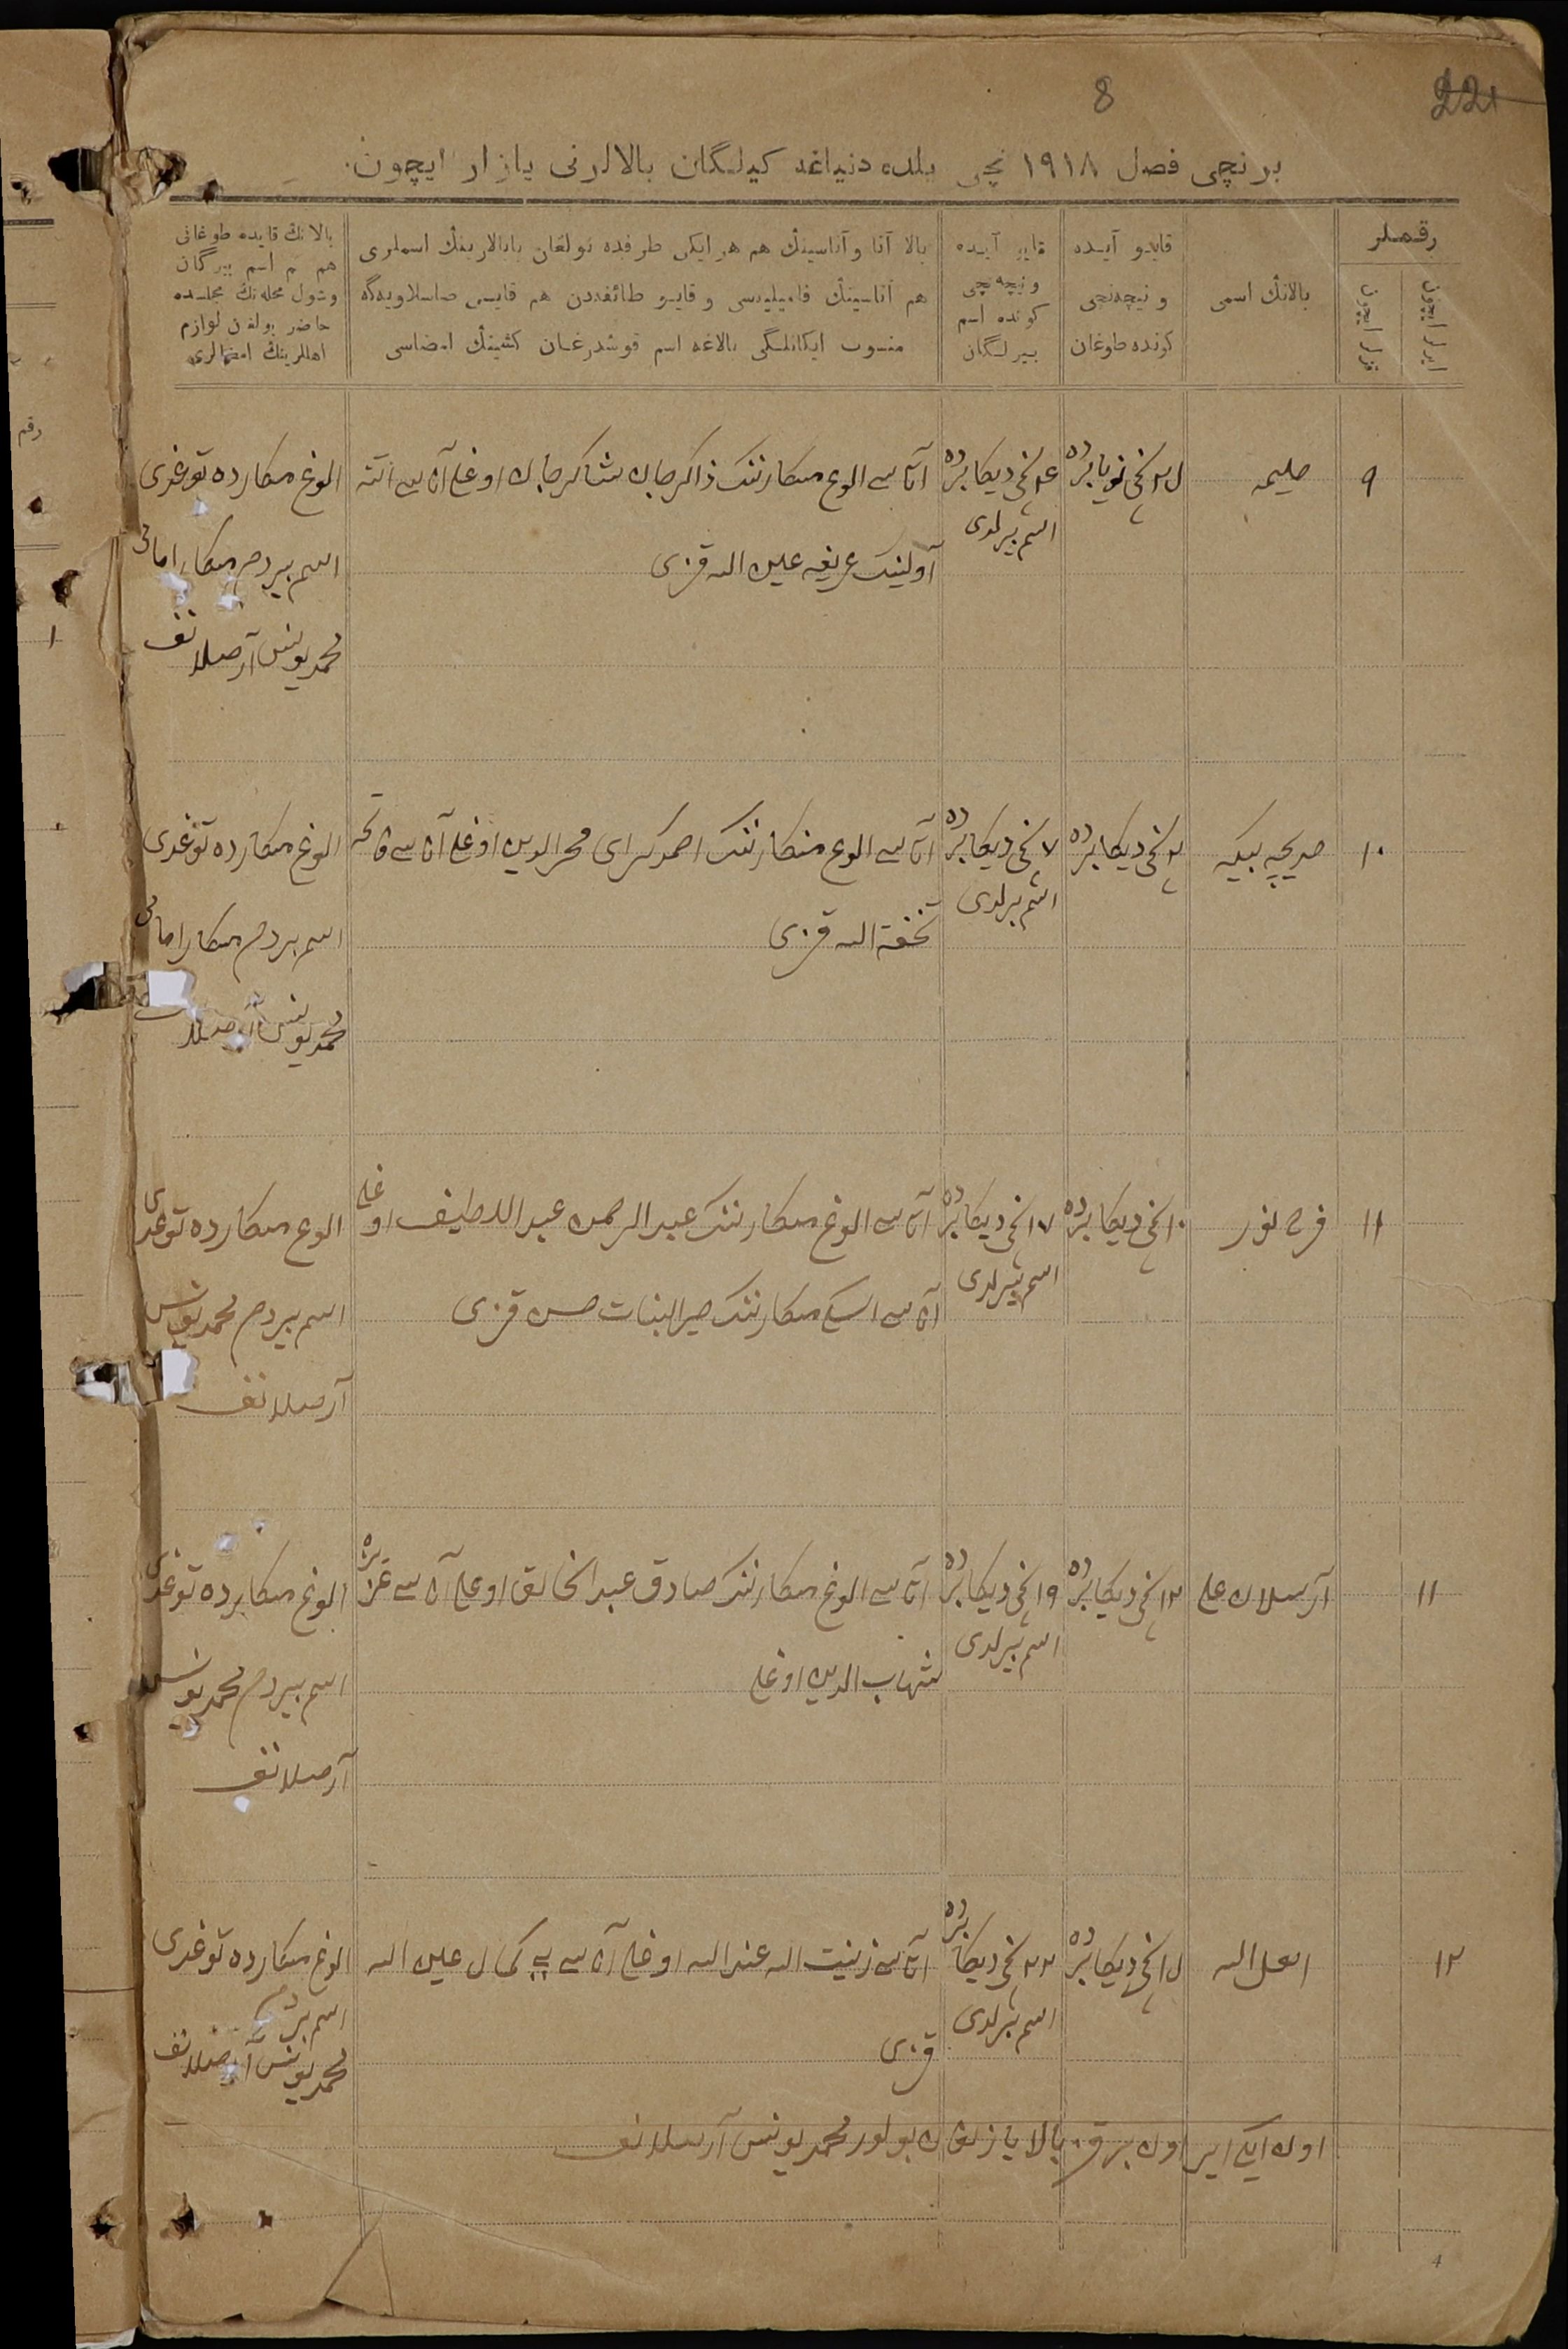 8
221
برنچی فصل ١٩١٨ نچی یلده دنیاغه کیلگان بالالرنی یازار ایچون.
رقملر
ایرلر ایچون
قزلر ایچون
بالانڭ اسمی
قایو آیده
و نیچه‌نچی
کونده طوغان
قایو آیده
و نیچه‌نچی
کونده اسم
بیرلگان
بالا آتا و آناسینڭ هم هر ایکی طرفده بولغان بابالارینڭ اسملری
هم آتاسینڭ فامیلیه‌سی و قایو طائفه‌دن هم قایسی صاسلاویه‌گه
منسوب ایکانلگی بالاغه اسم قوشدرغان کشینڭ امضاسی
بالانڭ قایده طوغانی
هم اسم بیرگان
و شول محله‌نڭ مجلسده
حاضر بولغان لوازم
اهللرینڭ امضالری
٩
حلیمه
نچی نویابرده
نچی دیکابرده
اسم بیرلدی
آتاسی الوغ منکارننک ذاکرجان شاکرجان اوغلی آناسی
آولینک عریفه عین الله قزی
الوغ منکارده توغدی
اسم بیردم منکار امامی
محمدیونس آرصلانف
١٠
خدیجه بیکه
٢ نچی دیکابرده
٧ نچی دیکابرده
اسم بیرلدی
آتاسی الوغ منکارننک احمدکرای فخرالدین اوغلی آناسی فاتحه
تحفة الله قزی
الوغ منکارده توغدی
اسم بیردم منکار امامی
محمدیونس آرصلانف
١١
فرح نور
١٠ نچی دیکابرده
١٧ نچی دیکابرده
اسم بیرلدی
آتاسی الوغ منکارننک عبدالرحمن عبداللطیف اوغلی
آناسی اسکی منکارننک خیرالبنات حسن قزی
الوغ منکارده توغدی
اسم بیردم محمدیونس
آرصلانف
١١
آرسلان علی
١٢ نچی دیکابرده
١٩ نچی دیکابرده
اسم بیرلدی
آتاسی الوغ منکارننک صادق عبدالخالق اوغلی آناسی عزیزه
شهاب الدین اوغلی
الوغ منکارده توغدی
اسم بیردم محمدیونس
آرصلانف
١٢
نچی دیکابرده
٢٢ نچی دیکابرده
اسم بیرلدی
آتاسی زینت الله اوغلی آناسی بی کمال عین الله
قزی
الوغ منکارده توغدی
اسم بیردم
محمدیونس آرصلانف
اون ایکی ایر اون بر قز بالا یازلغان بولور محمدیونس آرسلانف